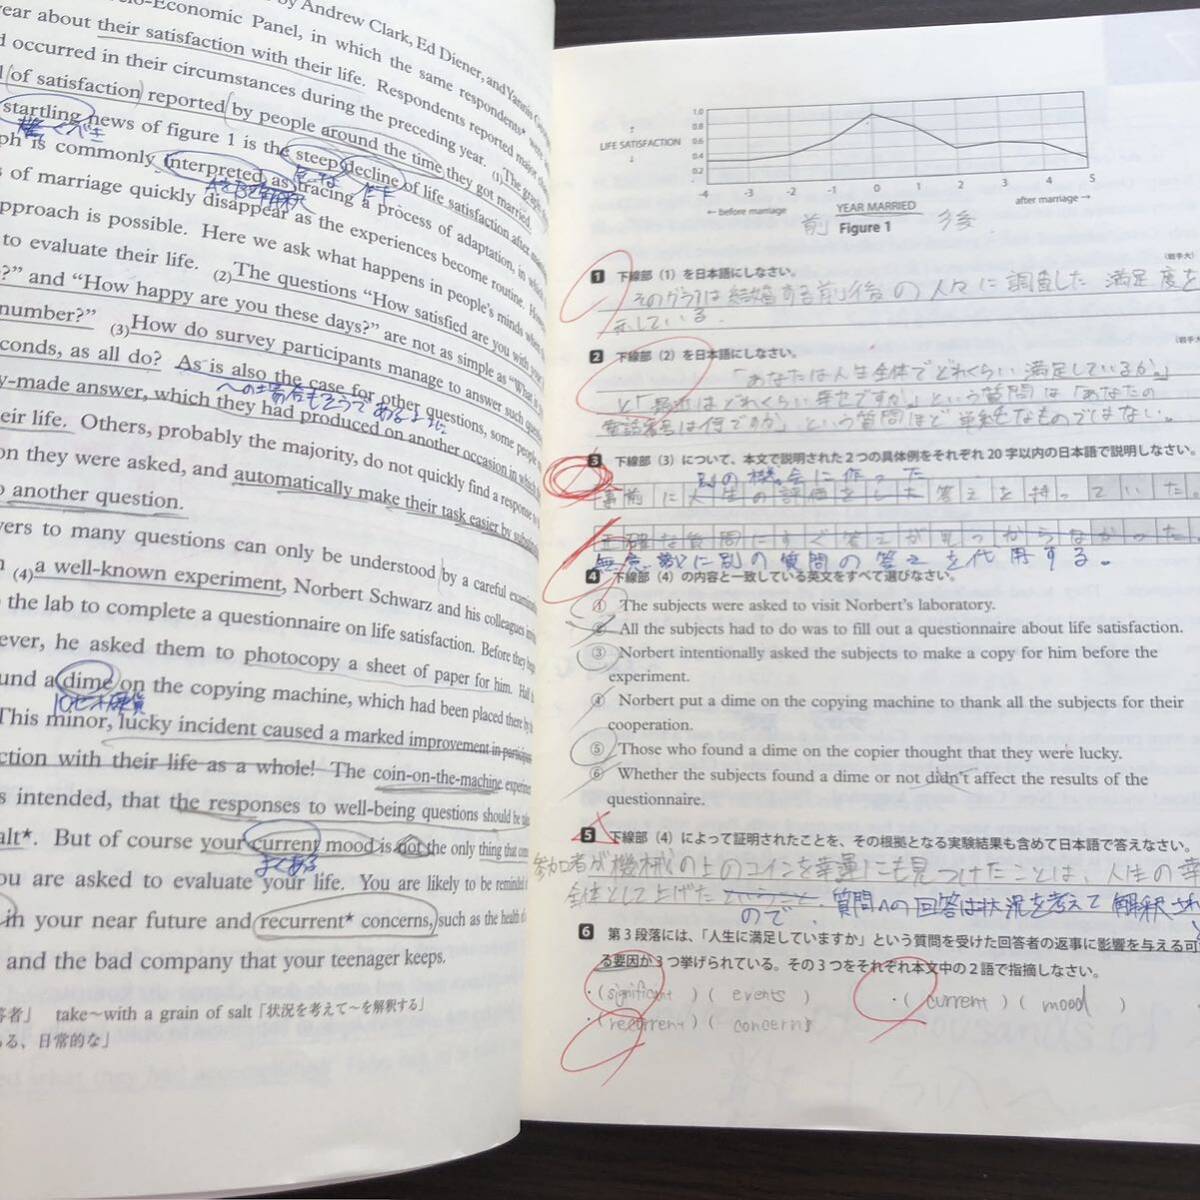 by Andrew Clark, Ed Diener, and Yannis
-Economic Panel, in which the same respondents* were
year about their satisfaction with their life. Respondents reported major
occurred in their circumstances during the preceding year. (1)The graph
of satisfaction reported by people around the time they got married.
startling news of figure 1 is the steep decline of life satisfaction after
驚くべき
急な 低下
is commonly interpreted as tracing a process of adaptation, in which
AをBと解釈
s of marriage quickly disappear as the experiences become routine. However
approach is possible. Here we ask what happens in people's minds when
to evaluate their life. (2)The questions "How satisfied are you with your
?" and "How happy are you these days?" are not as simple as "What is
number?" (3)How do survey participants manage to answer such questions
seconds, as all do? As is also the case for other questions, some people
~の場合もそうであるように
-made answer, which they had produced on another occasion in which
eir life. Others, probably the majority, do not quickly find a response
on they were asked, and automatically make their task easier by
another question.
ers to many questions can only be understood by a careful
(4)a well-known experiment, Norbert Schwarz and his colleagues
the lab to complete a questionnaire on life satisfaction. Before they
ever, he asked them to photocopy a sheet of paper for him. Half
und a dime on the copying machine, which had been placed there by
10セント硬貨
This minor, lucky incident caused a marked improvement in
ction with their life as a whole! The coin-on-the-machine
s intended, that the responses to well-being questions should be
alt*. But of course your current mood is not the only thing that
you are asked to evaluate your life. You are likely to be reminded
in your near future and recurrent* concerns, such as the health
and the bad company that your teenager keeps.
答者」 take~with a grain of salt「状況を考えて~を解釈する」
ある、日常的な」
1.0
0.8
0.6
0.4
0.2
LIFE SATISFACTION
-4 -3 -2 -1 0 1 2 3 4 5
← before marriage YEAR MARRIED after marriage →
前 Figure 1 後
(岩手大)
1 下線部(1)を日本語にしなさい。
そのグラフは結婚する前後の人々に調査した満足度を
示している。
2 下線部(2)を日本語にしなさい。
「あなたは人生全体でどれくらい満足しているか。」
と「最近はどれくらい幸せですか」という質問は「あなたの
電話番号は何ですか」という質問ほど単純なものではない。
3 下線部(3)について、本文で説明された2つの具体例をそれぞれ20字以内の日本語で説明しなさい。
別の機会に作った
事前に人生の評価をした答えを持っていた。
正確な質問にすぐ答えが見つからなかった。
無意識に別の質問の答えを代用する。
4 下線部(4)の内容と一致している英文をすべて選びなさい。
① The subjects were asked to visit Norbert's laboratory.
② All the subjects had to do was to fill out a questionnaire about life satisfaction.
③ Norbert intentionally asked the subjects to make a copy for him before the
experiment.
④ Norbert put a dime on the copying machine to thank all the subjects for their
cooperation.
⑤ Those who found a dime on the copier thought that they were lucky.
⑥ Whether the subjects found a dime or not didn't affect the results of the
questionnaire.
5 下線部(4)によって証明されたことを、その根拠となる実験結果も含めて日本語で答えなさい。
参加者が機械の上のコインを幸運にも見つけたことは、人生の幸
全体として上げた
ので、質問への回答は状況を考えて解釈され
6 第3段落には、「人生に満足していますか」という質問を受けた回答者の返事に影響を与える可
る要因が3つ挙げられている。その3つをそれぞれ本文中の2語で指摘しなさい。
・(significant)(events) ・(current)(mood)
・(recurrent)(concerns)